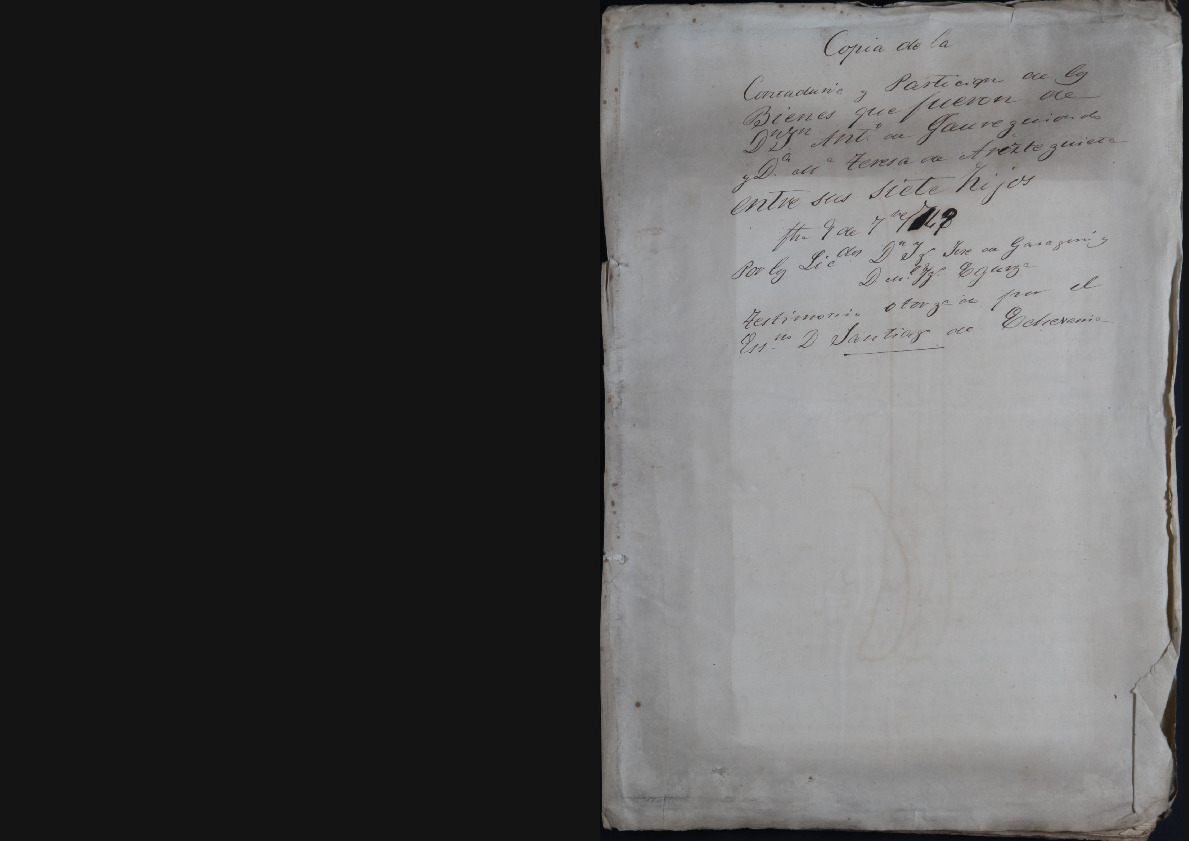 Copia de la
Contaduria y Particion de los
Bienes que fueron de
Dn Jn Antº de Jaureguiondo
y Dª Mª Teresa de Arizteguieta
entre sus siete hijos
fha 9 de 7bre
Por los Licdos Dn Jn Jre de Garagorri y
D Egurza
Testimonio otorgado por el
Essno D Santiago de Echeverria